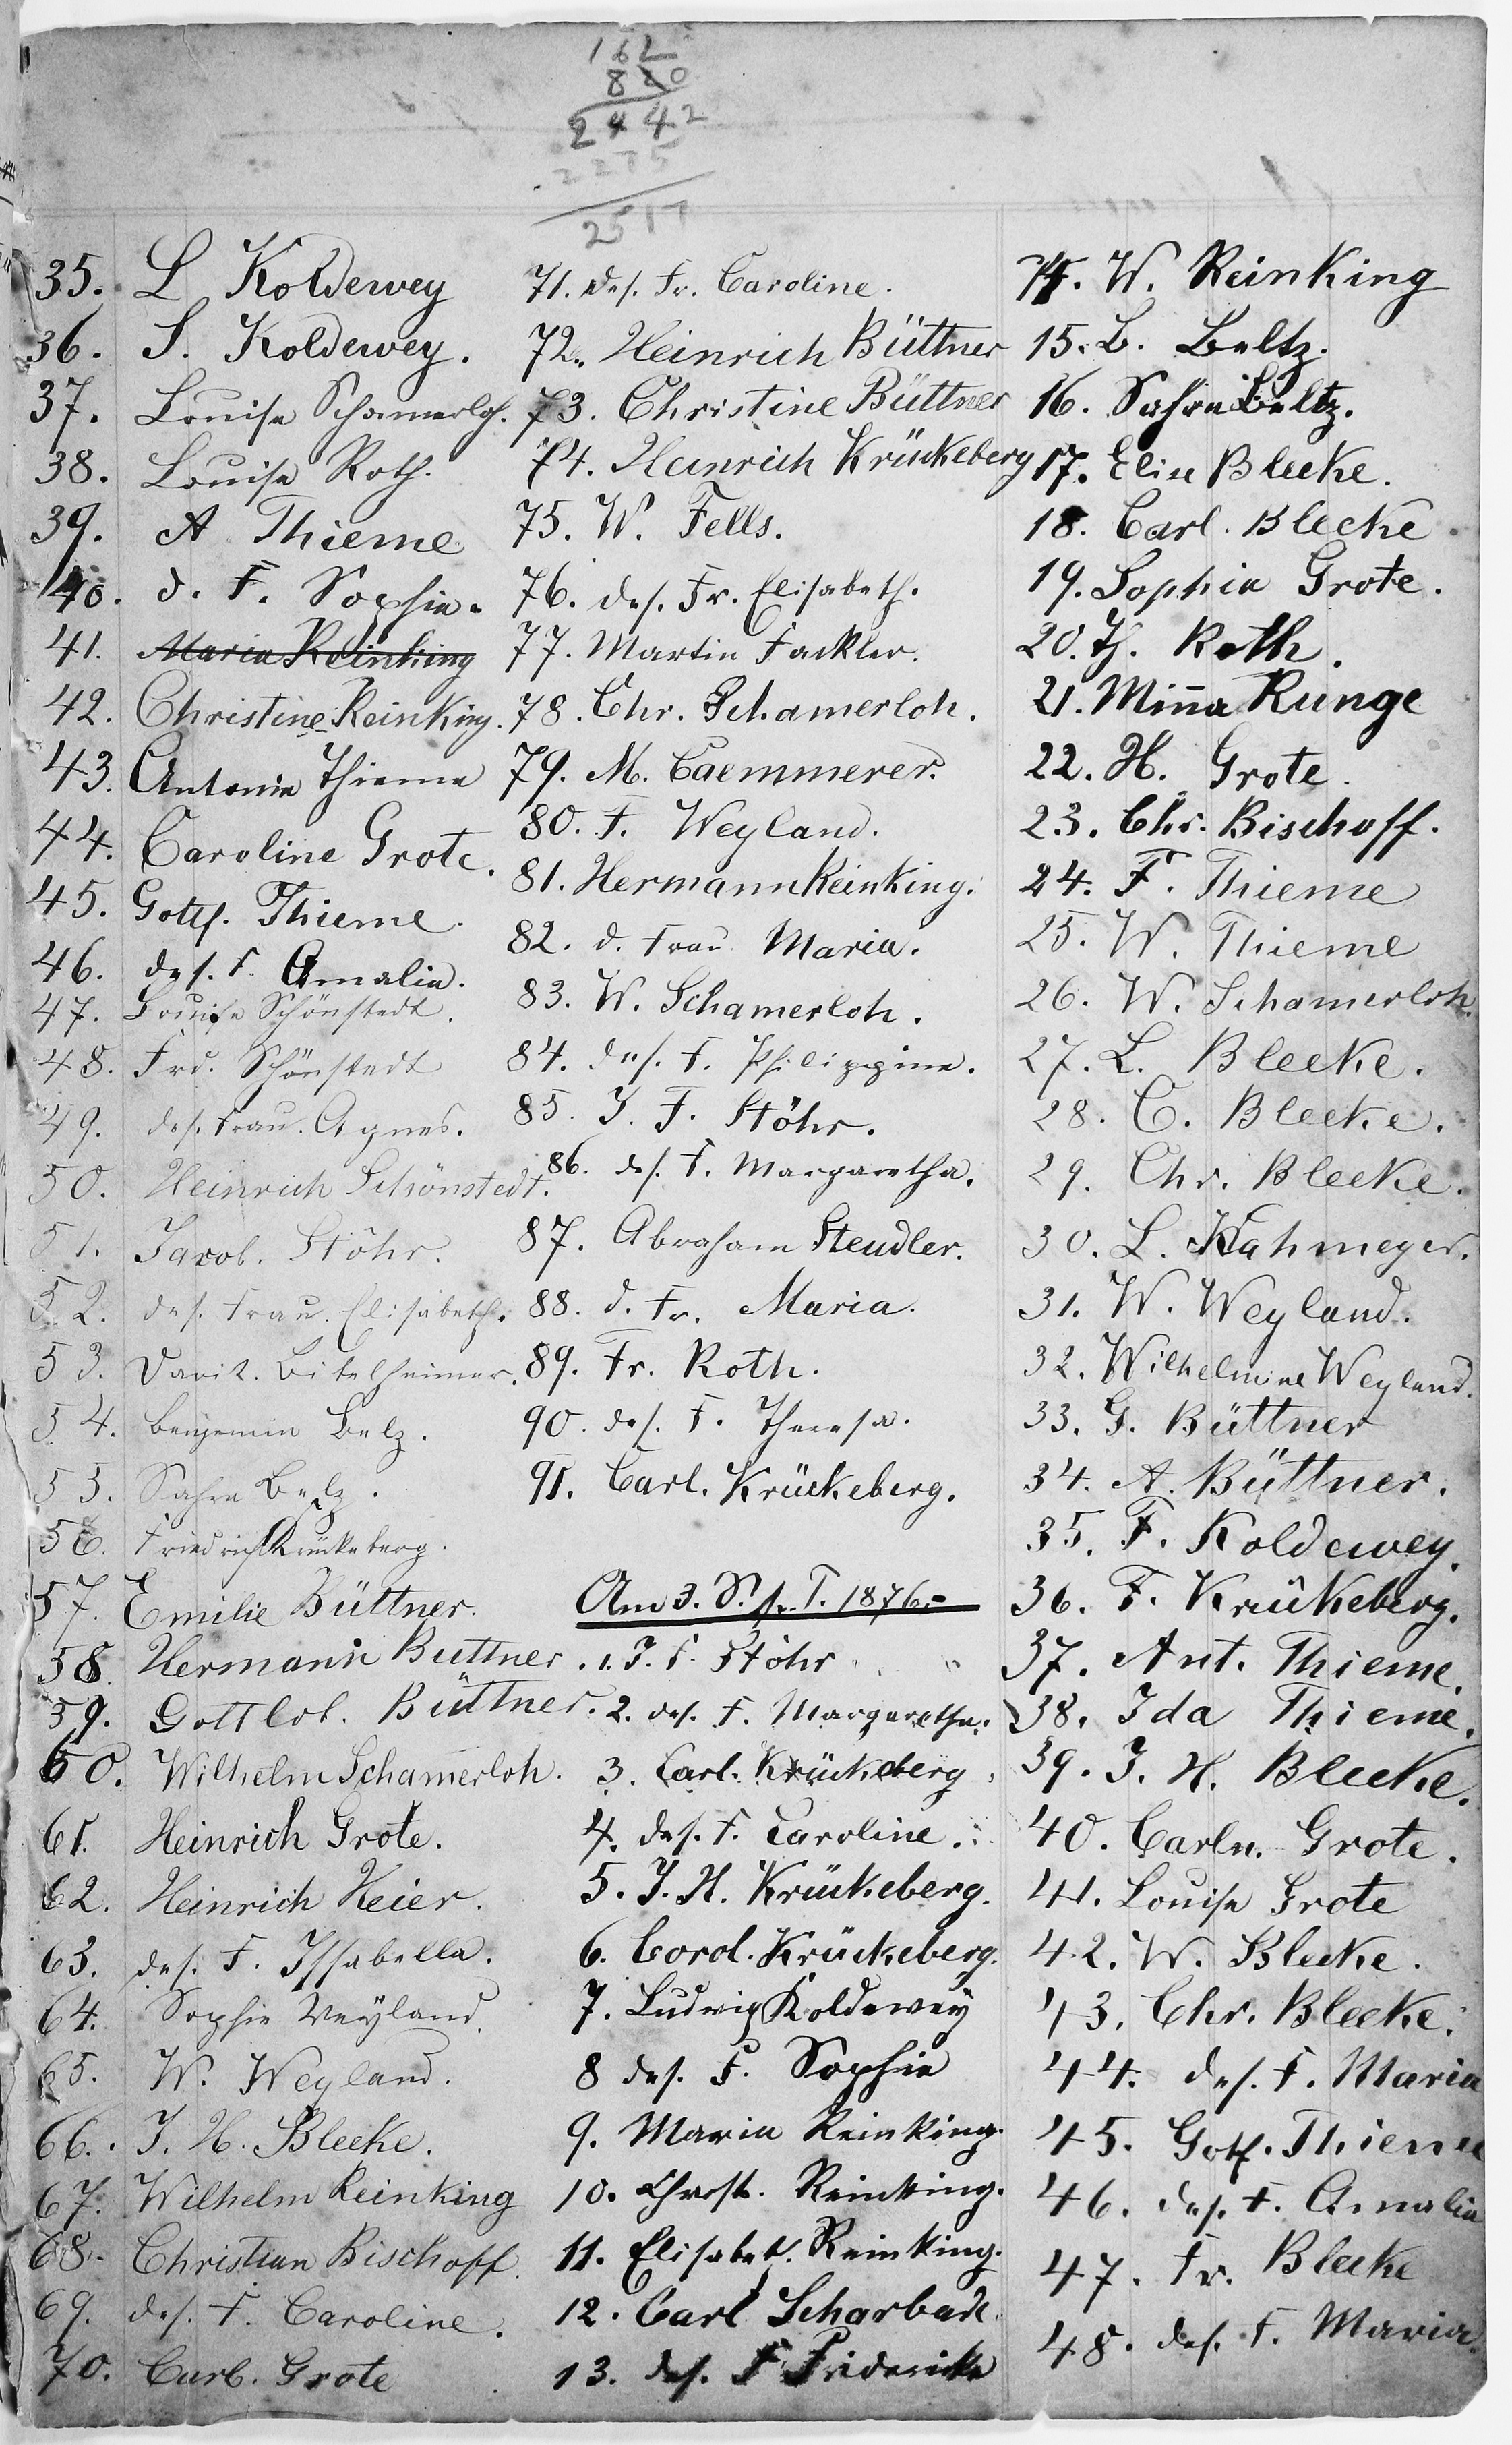 162
820
2442
2275
2517
35. L Koldewey
36. S. Koldewey.
37. Louise Schamerloh.
38. Louise Roth.
39. A Thieme
40. d. F. Sophie.
41. Maria Reinking
42. Christine Reinking.
43. Antonie Thieme
44. Caroline Grote.
45. Gottf. Thieme.
46. des. F. Amalie.
47. Louise Schönstedt.
48. Frd. Schönstedt
49. des. Frau. Agnes.
50. Heinrich Schönstedt.
51. Jacob. Stöhr.
52. des. Frau. Elisabeth.
53. David. Bitelheimer.
54. Benjemin Belz.
55. Sahra Belz.
56. Friedrich Krückeberg.
57. Emilie Büttner.
58. Hermann Buttner.
59. Gottlob. Büttner.
60. Wilhelm Schamerloh.
61. Heinrich Grote.
62. Heinrich Keier.
63. des. F. Issabella.
64. Sophie Weyland.
65. W. Weyland.
66. J. H. Bleeke.
67. Wilhelm Reinking
68. Christian Bischoff.
69. des. F. Caroline.
70. Carl. Grote
71. des. Fr. Caroline.
72. Heinrich Büttner
73. Christine Büttner
74. Heinrich Krückeberg
75. W. Fells.
76. des. Fr. Elisabeth.
77. Martin Fackler.
78. Chr. Schamerloh.
79. M. Caemmerer.
80. F. Weyland.
81. Hermann Reinking.
82. d. Frau Maria.
83. W. Schamerloh.
84. des. F. Philippine.
85. J. F. Stöhr.
86. des. F. Margaretha.
87. Abraham Steudler.
88. d. Fr. Maria.
89. Fr. Roth.
90. des. F. Theresa.
91. Carl. Krückeberg.
Am 3. S. p. T. 1876.
1. J. F. Stöhr
2. des. F. Margaretha.
3. Carl. Krückeberg
4. des. F. Caroline.
5. J. H. Krückeberg.
6. Corol. Krückeberg.
7. Ludwig Koldewey
8 des. F. Sophie
9. Maria Reinking.
10. Christ. Reinking.
11. Elisabet. Reinking.
12. Carl Scharbade
13. des. F Friderieke
14. W. Reinking
15. B. Beltz.
16. Sahra Beltz.
17. Elise Bleeke.
18. Carl. Bleeke
19. Sophie Grote.
20. Th. Roth.
21. Minna Runge
22. H. Grote.
23. Chr. Bischoff.
24. F. Thieme
25. W. Thieme
26. W. Schamerloh.
27. L. Bleeke.
28. C. Bleeke.
29. Chr. Bleeke.
30. L. Kahmeyer.
31. W. Weyland.
32. Wilhelmine Weyland.
33. G. Büttner
34. A. Büttner.
35. F. Koldewey.
36. F. Krückeberg.
37. Ant. Thieme.
38. Ida Thieme.
39. J. H. Bleeke.
40. Carln. Grote.
41. Louise Grote
42. W. Bleeke.
43. Chr. Bleeke.
44. des. F. Maria
45. Gotf. Thieme
46. des. F. Amalia
47. Fr. Bleeke
48. des. F. Maria.